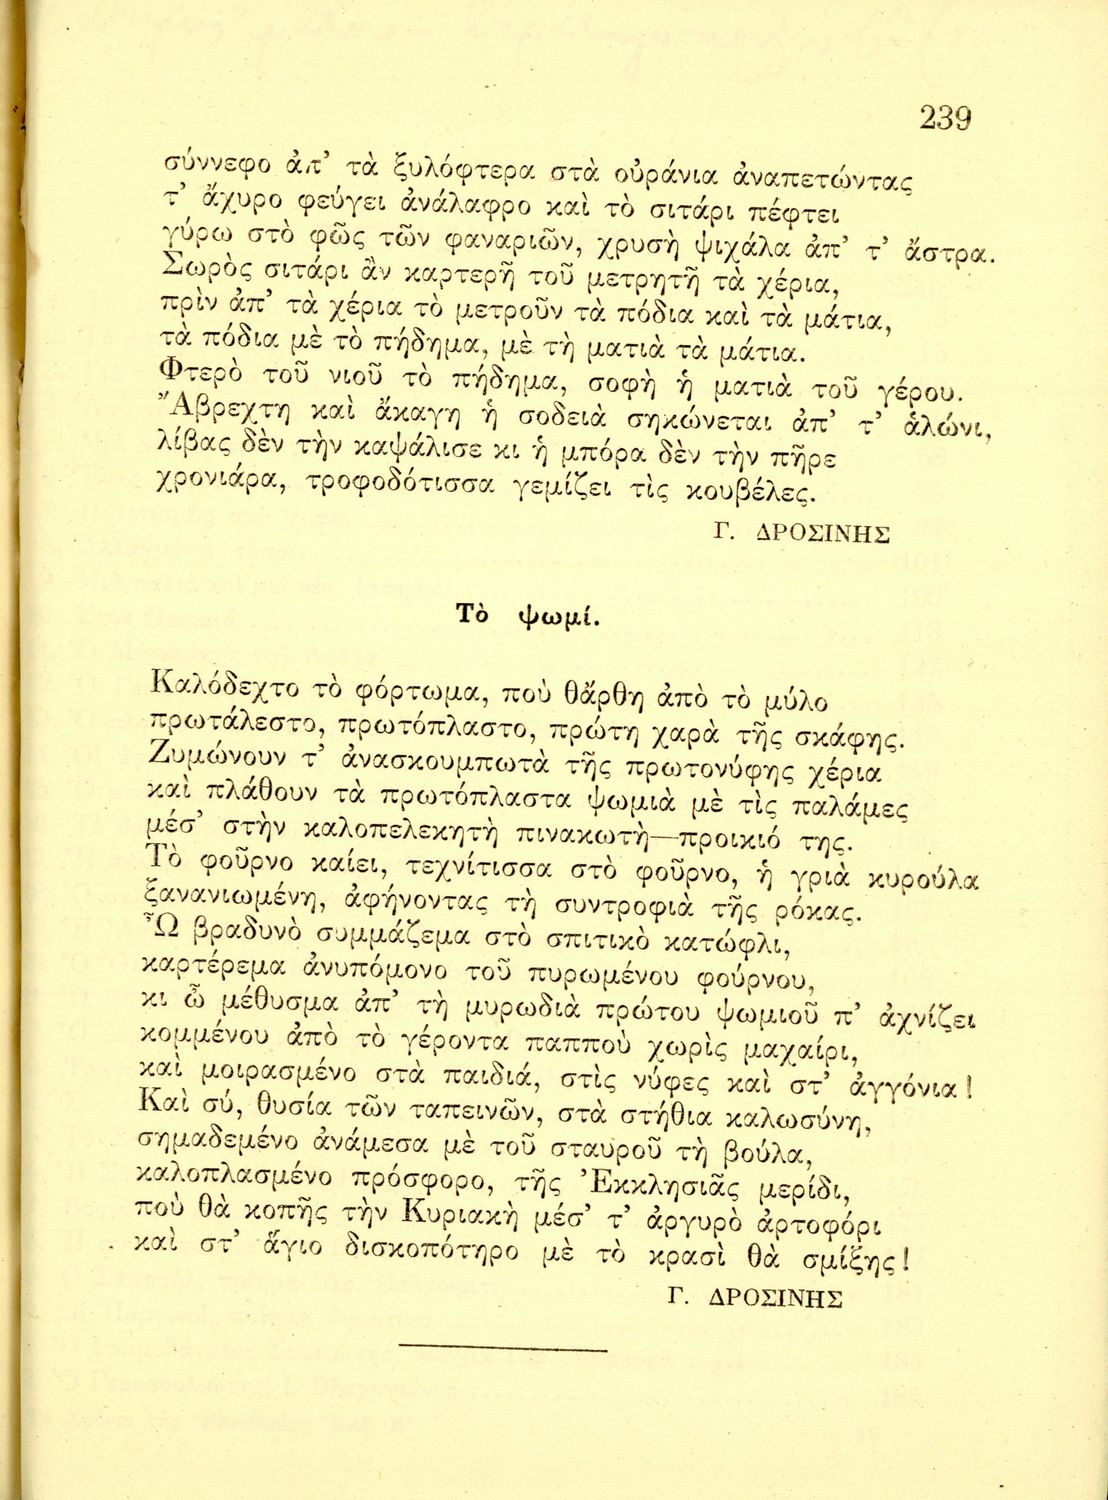 239
σύννεφο ἀπ’ τὰ ξυλόφτερα στὰ οὐράνια ἀναπετώντας
τ’ ἄχυρο φεύγει ἀνάλαφρο καὶ τὸ σιτάρι πέφτει
γύρω στὸ φῶς τῶν φαναριῶν, χρυσὴ ψιχάλα ἀπ’ τ’ ἄστρα.
Σωρὸς σιτάρι ἂν καρτερῇ τοῦ μετρητῆ τὰ χέρια,
πρὶν ἀπ’ τὰ χέρια τὸ μετροῦν τὰ πόδια καὶ τὰ μάτια,
τὰ πόδια μὲ τὸ πήδημα, μὲ τὴ ματιὰ τὰ μάτια.
Φτερὸ τοῦ νιοῦ τὸ πήδημα, σοφὴ ἡ ματιὰ τοῦ γέρου.
Ἄβρεχτη καὶ ἄκαγη ἡ σοδειὰ σηκώνεται ἀπ’ τ’ ἁλώνι,
λίβας δὲν τὴν καψάλισε κι ἡ μπόρα δὲν τὴν πῆρε
χρονιάρα, τροφοδότισσα γεμίζει τὶς κουβέλες.
Γ. ΔΡΟΣΙΝΗΣ
Τὸ ψωμί.
Καλόδεχτο τὸ φόρτωμα, ποὺ θἄρθη ἀπὸ τὸ μύλο
πρωτάλεστο, πρωτόπλαστο, πρώτη χαρὰ τῆς σκάφης.
Ζυμώνουν τ’ ἀνασκουμπωτὰ τῆς πρωτονύφης χέρια
καὶ πλάθουν τὰ πρωτόπλαστα ψωμιὰ μὲ τὶς παλάμες
μέσ’ στὴν καλοπελεκητὴ πινακωτὴ—προικιό της.
Τὸ φοῦρνο καίει, τεχνίτισσα στὸ φοῦρνο, ἡ γριὰ κυρούλα
ξανανιωμένη, ἀφήνοντας τὴ συντροφιὰ τῆς ρόκας.
Ὦ βραδυνὸ συμμάζεμα στὸ σπιτικὸ κατώφλι,
καρτέρεμα ἀνυπόμονο τοῦ πυρωμένου φούρνου,
κι ὦ μέθυσμα ἀπ’ τὴ μυρωδιὰ πρώτου ψωμιοῦ π’ ἀχνίζει
κομμένου ἀπὸ τὸ γέροντα παπποὺ χωρὶς μαχαίρι,
καὶ μοιρασμένο στὰ παιδιά, στὶς νύφες καὶ στ’ ἀγγόνια!
Καὶ σύ, θυσία τῶν ταπεινῶν, στὰ στήθια καλωσύνη,
σημαδεμένο ἀνάμεσα μὲ τοῦ σταυροῦ τὴ βούλα,
καλοπλασμένο πρόσφορο, τῆς Ἐκκλησιᾶς μερίδι,
ποὺ θὰ κοπῆς τὴν Κυριακὴ μέσ’ τ’ ἀργυρὸ ἀρτοφόρι
καὶ στ’ ἅγιο δισκοπότηρο μὲ τὸ κρασὶ θὰ σμίξης!
Γ. ΔΡΟΣΙΝΗΣ